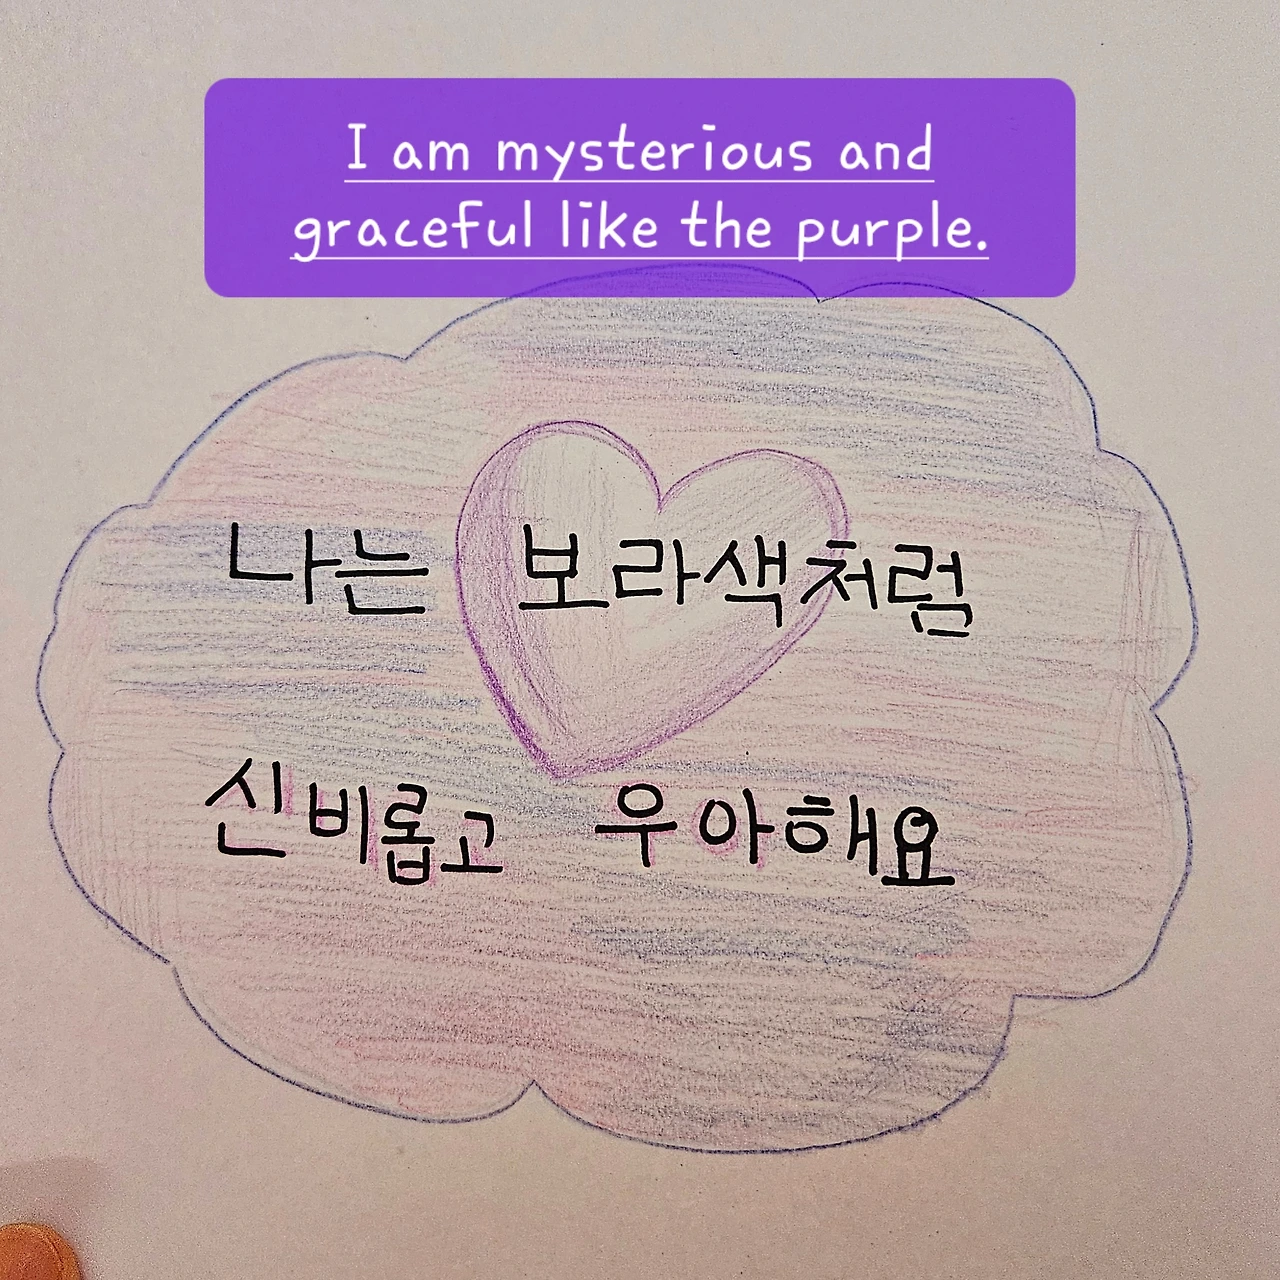 I am mysterious and
graceful like the purple.
나는 보라색처럼
신비롭고 우아해요